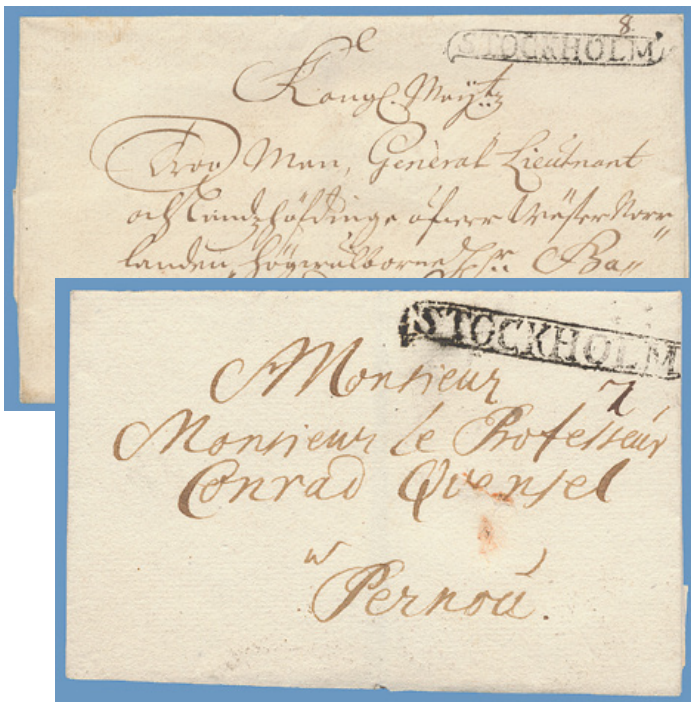 8.
STOCKHOLM
Kongl. Maÿtz
Troo Man, General Lieutnant
och Landzhöfdinge öfwer Wäster Norr„
landen, Högwälborne Hr. Ba„
STOCKHOLM
Monsieur
7
Monsieur le Professeur
Conrad Qvensel
Pernou.